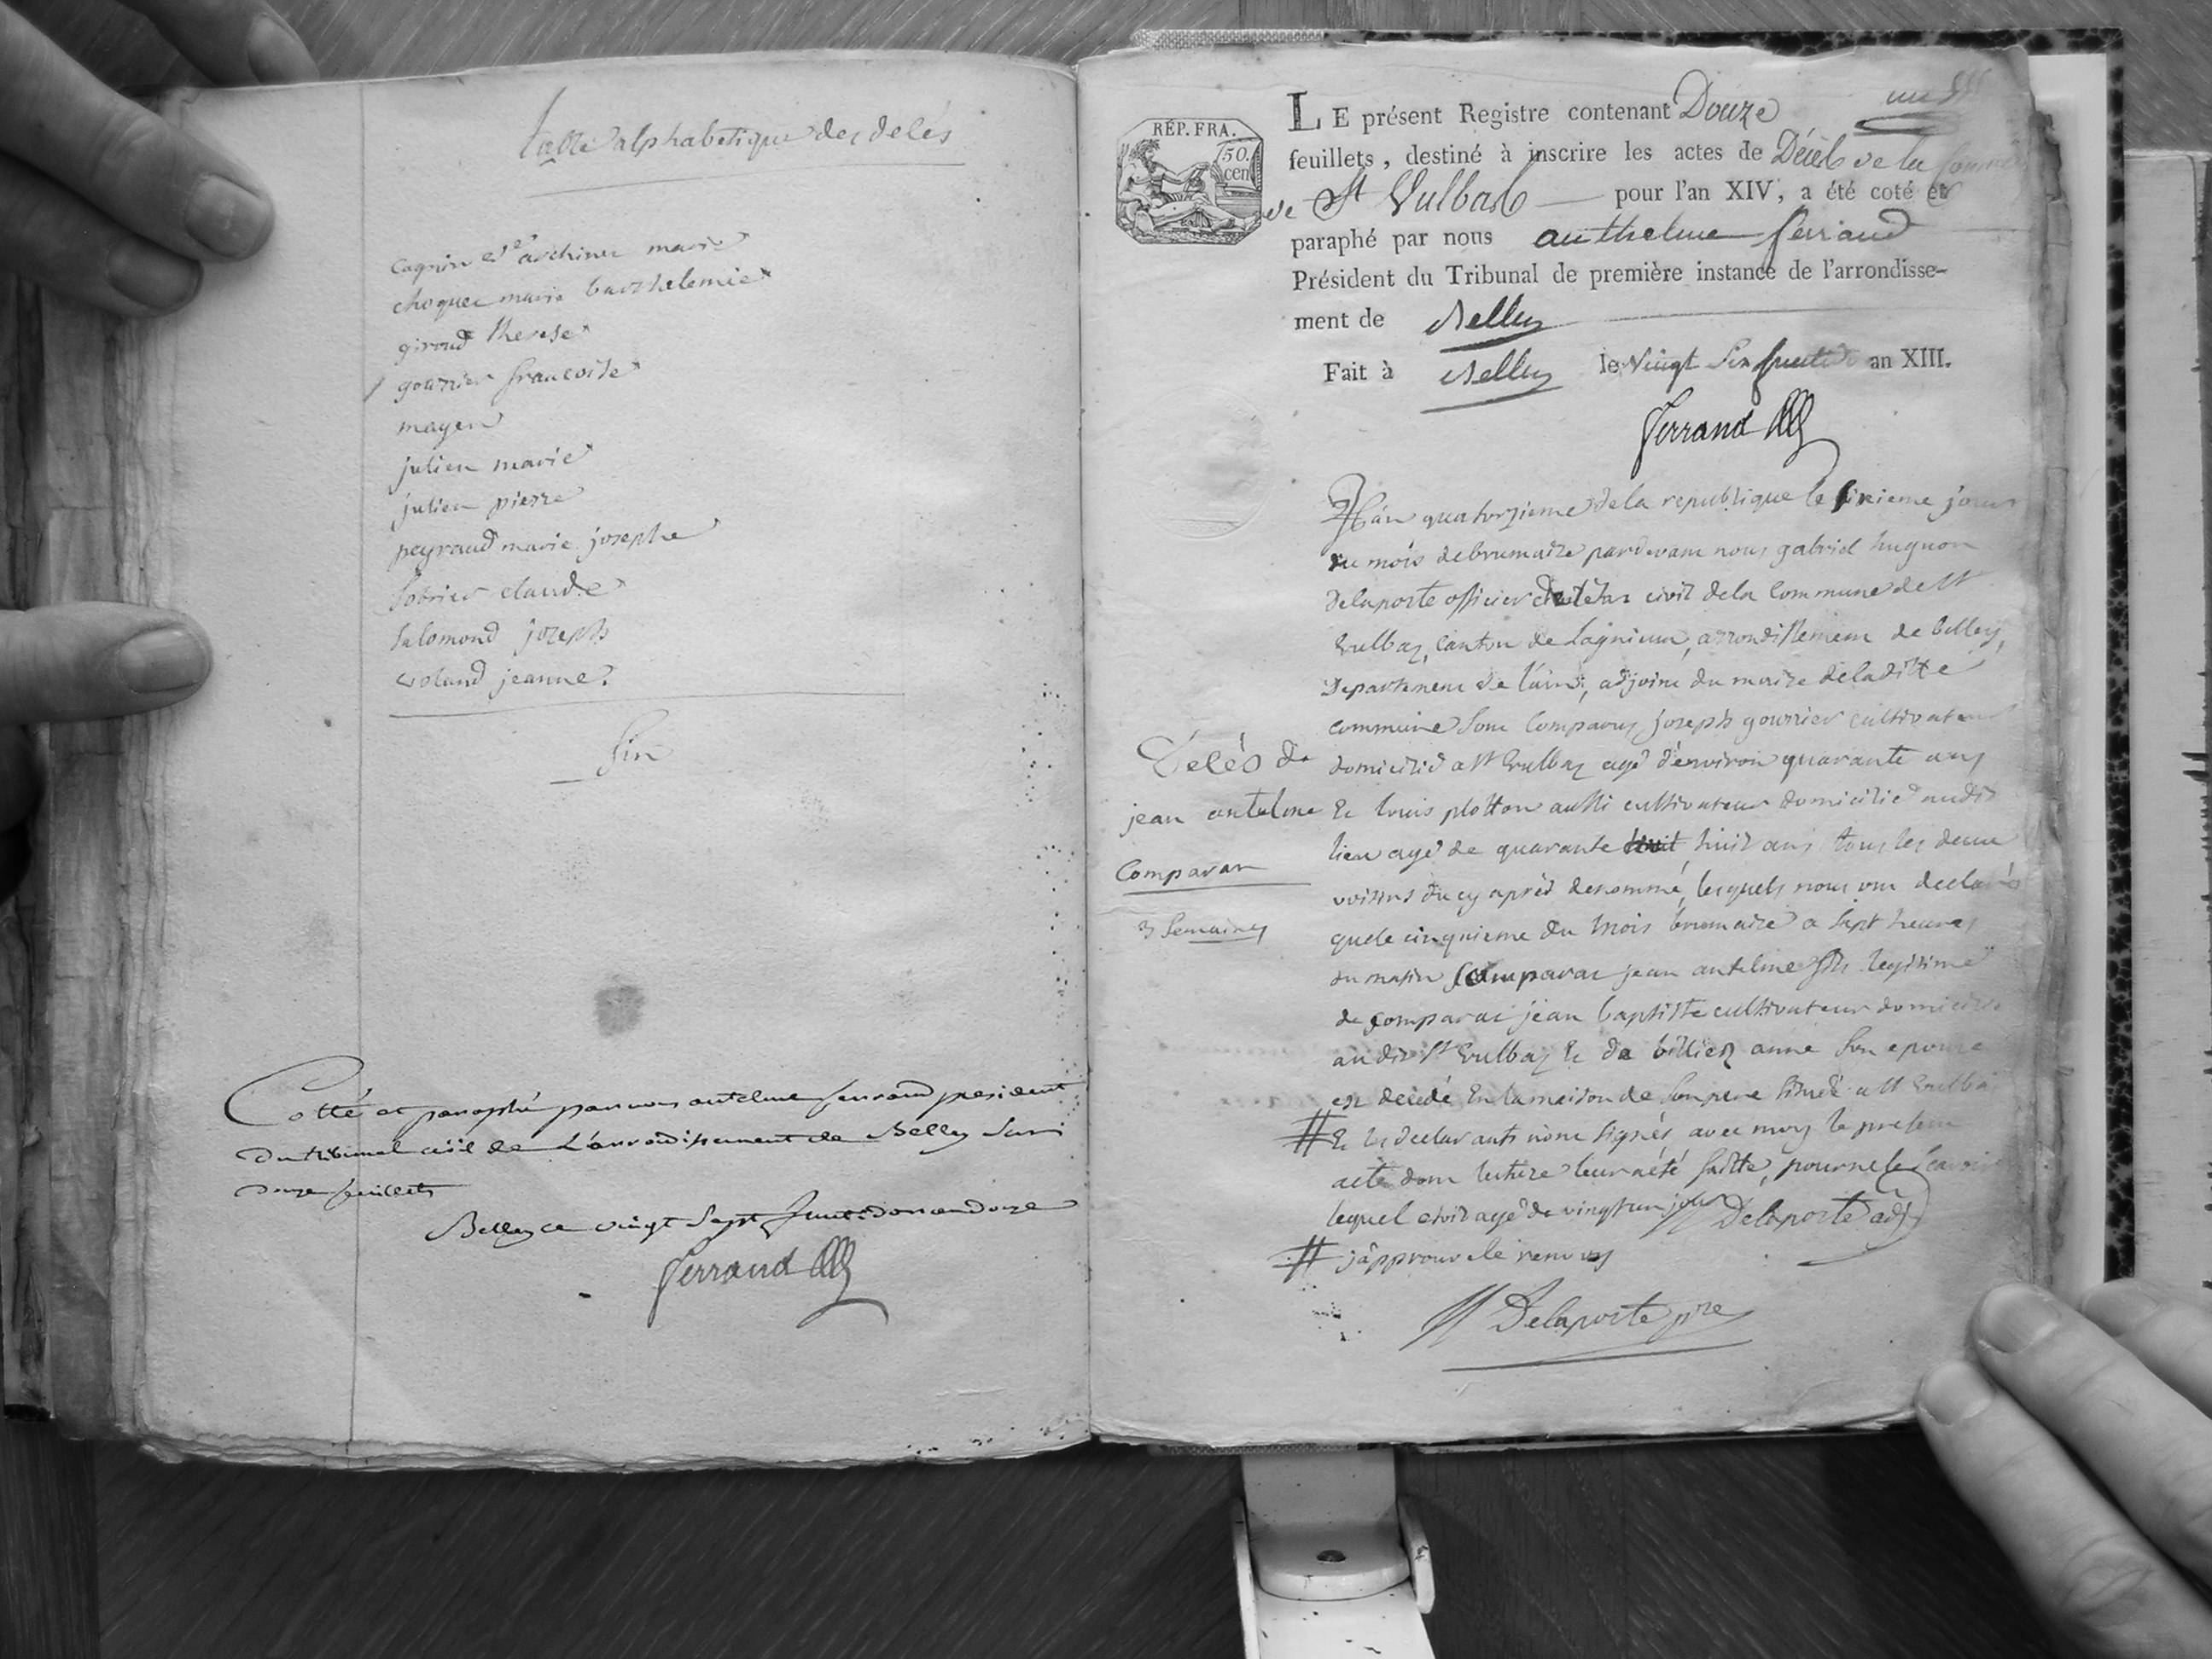 table alphabetique des delés
cagnin dit archiner marie
choquer marie barthelemie
giroud therese
gourrier francoise
mayen
julien marie
julien pierre
peyraud marie josephe
sobrier claude
salomond joseph
voland jeanne.
fin
Cotté et paraphé par nous antelme ferrand president
du tribunal civil de L'arrondissement de Belley sur
douze feuillets
Belley ce vingt sept fructidor an douze
Ferrand
RÉP. FRA.
50.
cen
LE présent Registre contenant Douze
feuillets, destiné à inscrire les actes de Décès de la Commune
de St Vulbas pour l'an XIV, a été coté et
paraphé par nous anthelme ferrand
Président du Tribunal de première instance de l'arrondisse-
ment de Belley
Fait à Belley le Vingt Six fructidor an XIII.
Ferrand
L'an quatorzieme de la republique le sixieme jour
du mois de brumaire pardevant nous gabriel hugnon
Delaporte officier de l'état civil de la Commune de St
Vulbaz, canton de Lagnieux, arrondissement de belley,
Departement de l'ain, adjoint du maire de laditte
commune sont comparus joseph gourrier cultivateur
domicilié a St Vulbaz agé d'environ quarante ans
et louis plotton aussi cultivateur domicilié audit
lieu agé de quarante huit huit ans tous les deux
voisins du cy après denommé, lesquels nous ont declarés
que le cinquieme du mois brumaire a sept heures
du matin Comparat jean antelme fils legitime
de comparat jean baptiste cultivateur domicilié
au dit St Vulbaz et de billiez anne son epouse
est décédé en la maison de son pere située a St Vulbaz
# Et les declarants n'ont signés avec moy le present
acte dont lecture leur a été faitte, pour ne le scavoir
lequel etoit agé de vingt un jour Delaporte adj
# j'approuve le renvoy
Delaporte pre
Delés de
jean antelme
Comparat
3 Semaines